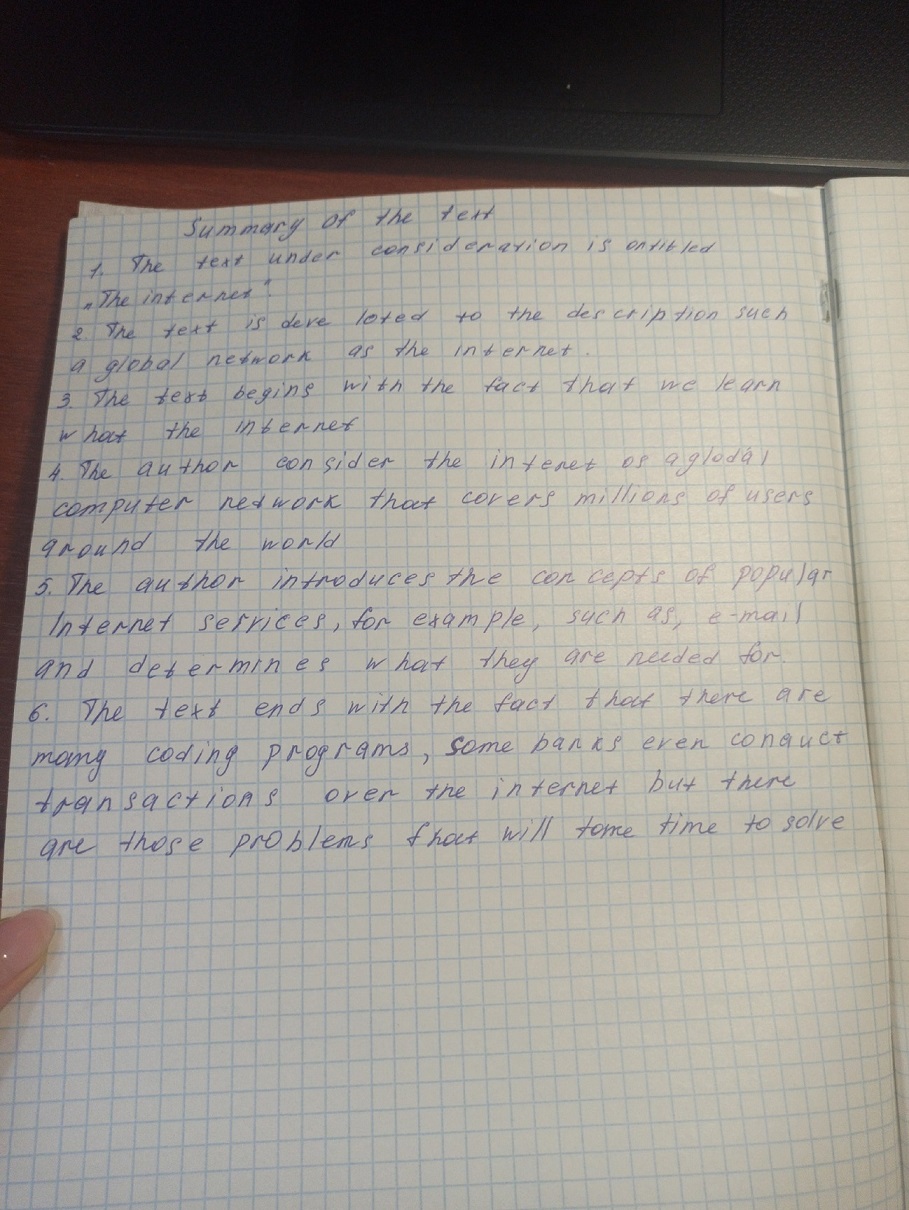 Summary of the text
1. The text under consideration is entibled
„The internet".
2. The text is deve loted to the description such
a global network as the internet.
3. The text begins with the fact that we learn
what the internet
4. The author consider the interet as a glodal
computer network that covers millions of users
around the world
5. The author introduces the concepts of popular
Internet services, for example, such as, e-mail
and determines what they are needed for.
6. The text ends with the fact that there are
many coding programs, some banks even conduct
transactions over the internet but there
are those problems that will tame time to solve